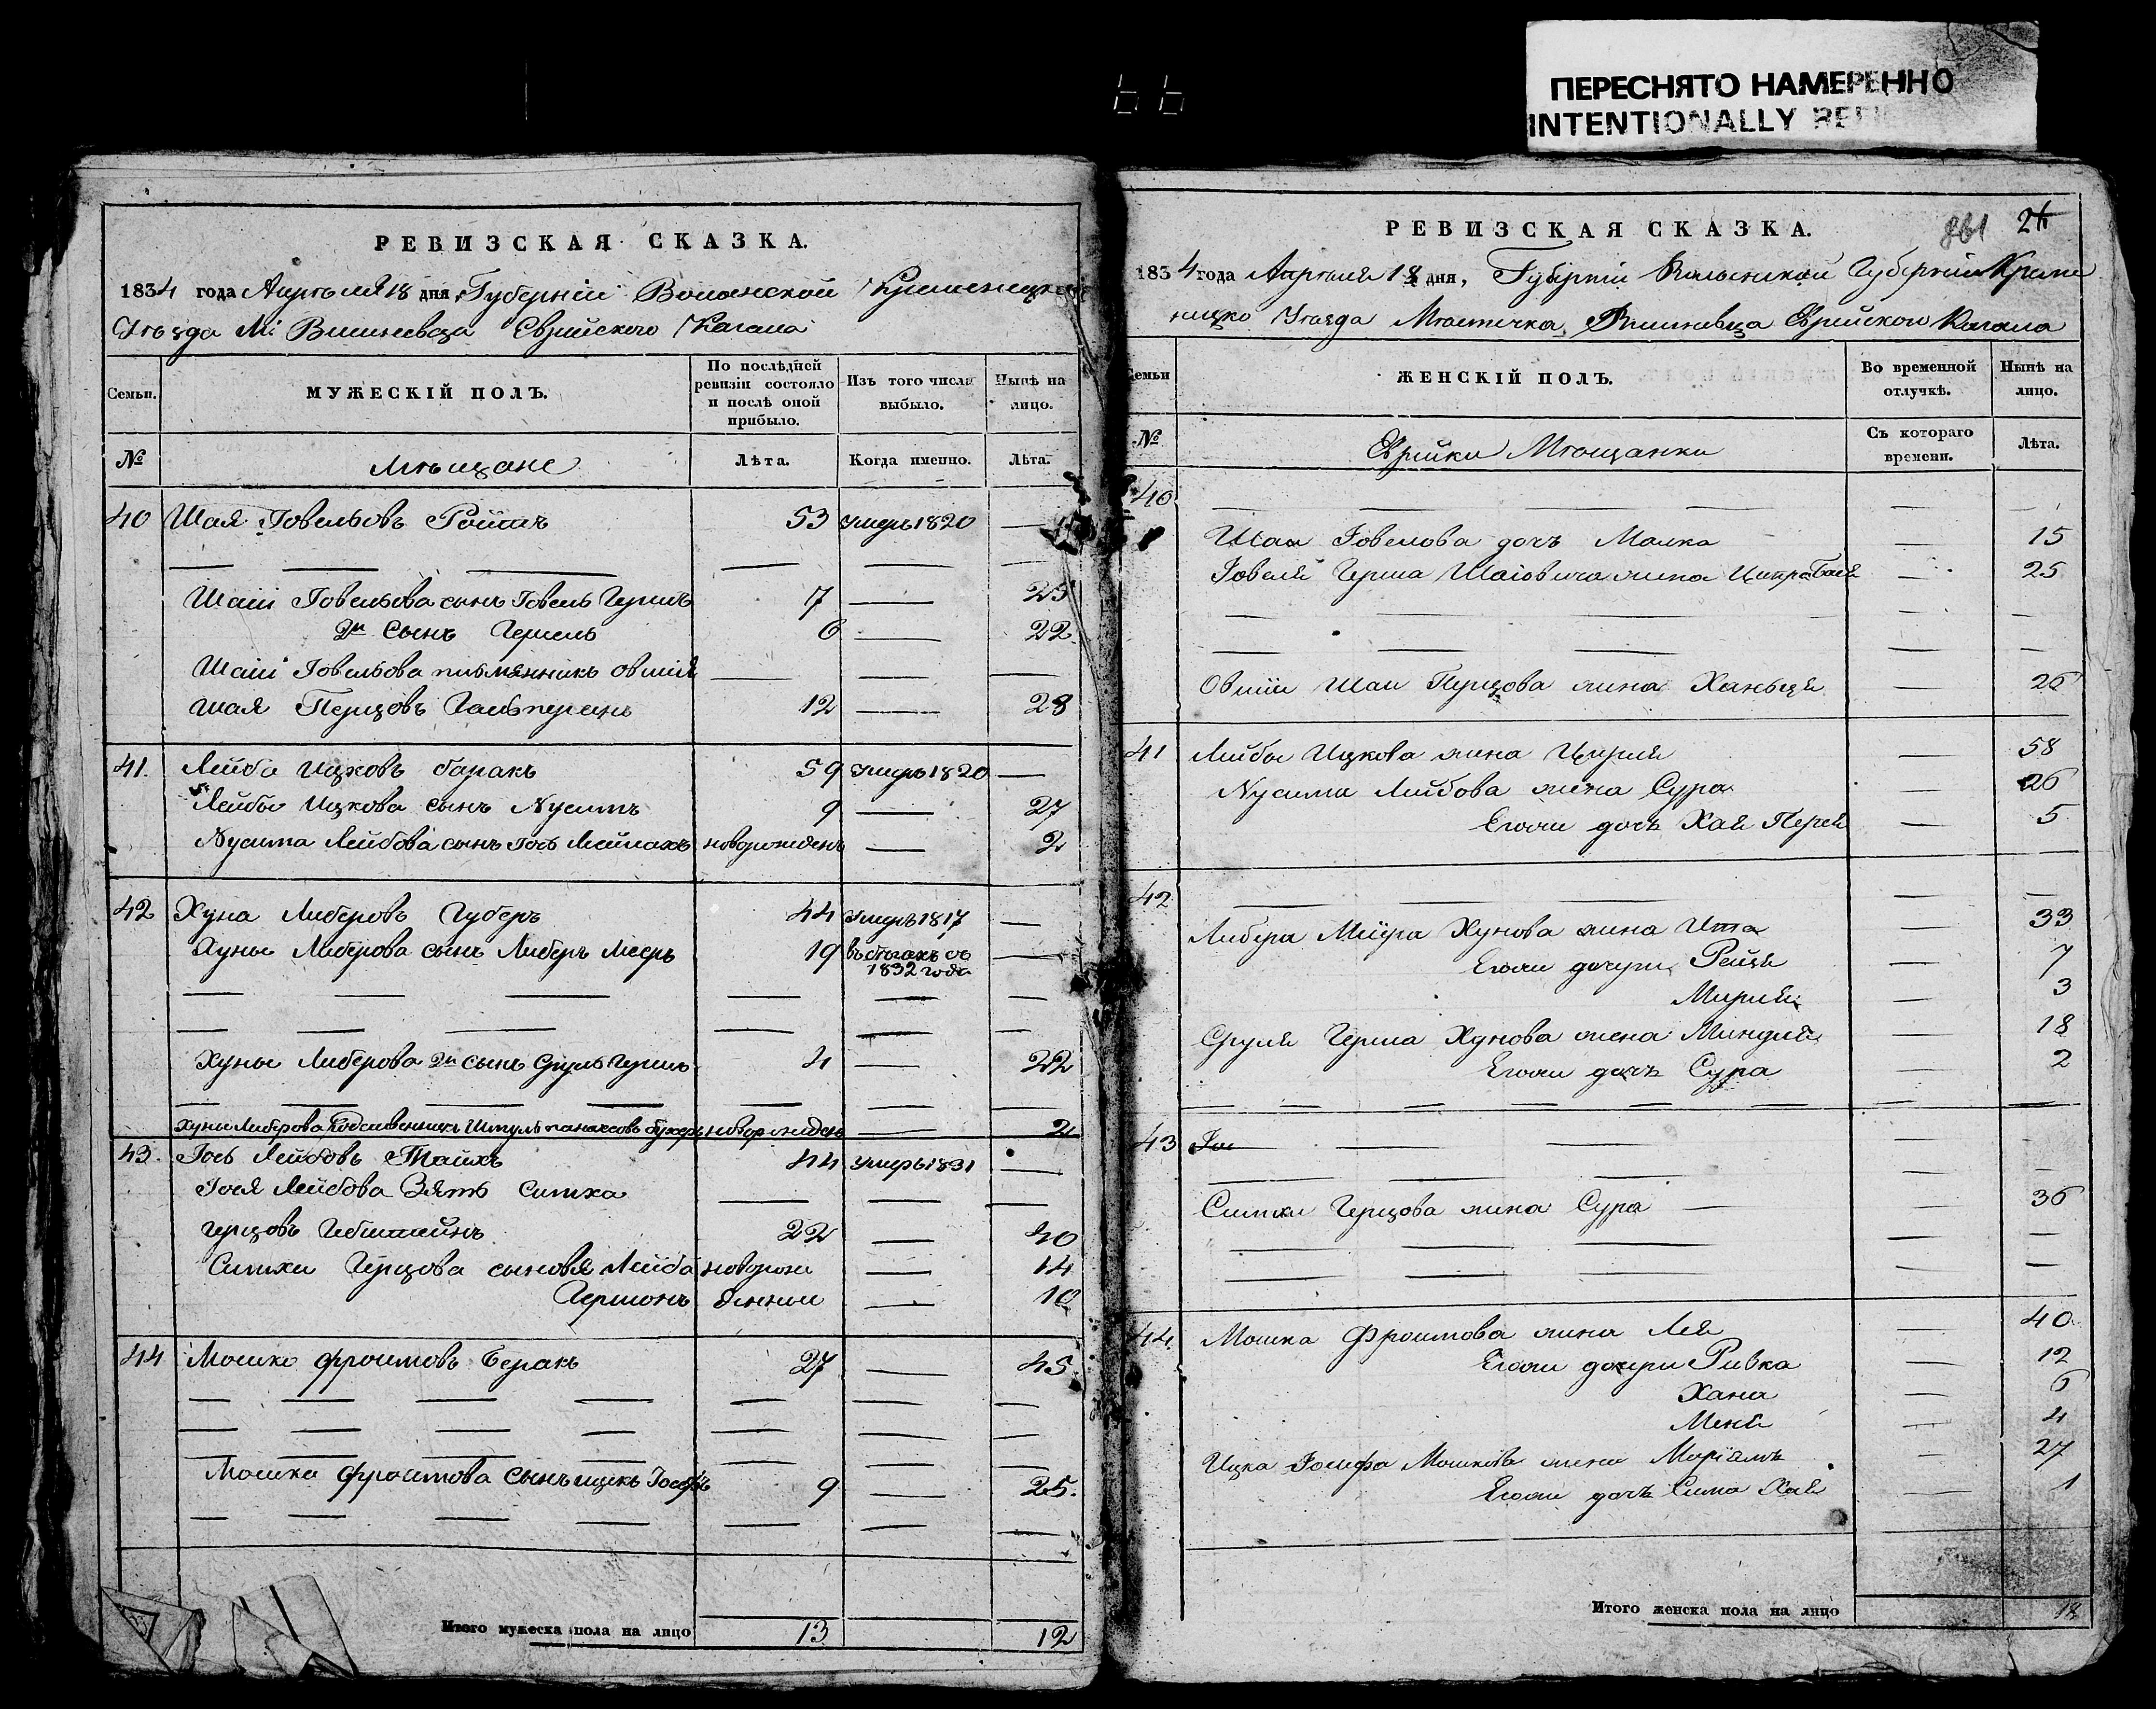 ПЕРЕСНЯТО НАМЕРЕННО
INTENTIONALLY
РЕВИЗСКАЯ СКАЗКА.
1834 года Апреля 18 дня, Губернии Волынской Кременецкаго
Уезда М: Вишневца Еврейского Кагала
Семьи.
МУЖЕСКІЙ ПОЛЪ.
По послѣдней ревизіи состояло и послѣ оной прибыло.
Изъ того числа выбыло.
Нынѣ на лицо.
№
Мѣщане
Лѣта.
Когда именно.
Лѣта.
40 Шая Іовельовъ Ройтъ 53 умеръ 1820
Шаіи Іовельова сынъ Іовель Гершъ 7 25
2й сынъ Гершль 6 22
Шаіи Іовельова племянникъ Овшія
Шая Перцовъ Гальперинъ 12 28
41. Лейба Ицковъ баракъ 59 умеръ 1820
Лейбы Ицкова сынъ Нусимъ 9 27
Нусима Лейбова сынъ Іось Мейлахъ новорожденъ 2
42 Хуна Либеровъ Губеръ 44 умеръ 1817
Хуны Либерова сынъ Либеръ Мееръ 19 въ бѣгахъ съ 1832 года
Хуны Либерова 2й сынъ Сруль Гершъ 4 22
Хуны Либерова новорожденъ 2
43. Іось Лейбовъ Тайхъ 44 умеръ 1831
Іося Лейбова Зять Ситха
Герцовъ 22 40
Герцова сыновя Лейба новорож 14
Гершонъ денныи 10
44 Мошко Фроимовъ Беракъ 27 45
Мошка Фроимова сынъ ицкъ Іосефъ 9 25.
Итого мужеска пола на лицо 13 12
РЕВИЗСКАЯ СКАЗКА.
861 24
1834 года Апреля 18 дня, Губерніи Волынской Губерніи Креме
ницко Уезда Мѣстечка Вишневца Еврейского Кагала
Семьи
ЖЕНСКІЙ ПОЛЪ.
Во временной отлучкѣ.
Нынѣ на лицо.
№
Еврейки Мѣщанки
Съ котораго времени.
Лѣта.
40
Шаи Іовелова дочь Малка 15
Іовеля Герша Шаіовича жена Ципра Бася 25
Овшіи Шаи Перцова жена Ханьця 26
41 Лейбы Ицкова жена Цирля 58
Нусима Лейбова жена Сура 26
Егожи дочь Хая Перля 5
42
Либера Меера Хунова жена Ита 33
Егожи дочери Рейзя 7
Миріям 3
Сруля Герша Хунова жена Миндля 18
Егожи дочь Сура 2
43 Іос
Герцова жена Сура 36
44. Мошка Фроимова жена Лея 40
Егожи дочери Ривка 12
Хана 6
Меня 4
Ицка Іосифа Мошкова жена Маріямъ 27
Егожи дочь Сима Хая 1
Итого женска пола на лицо 18